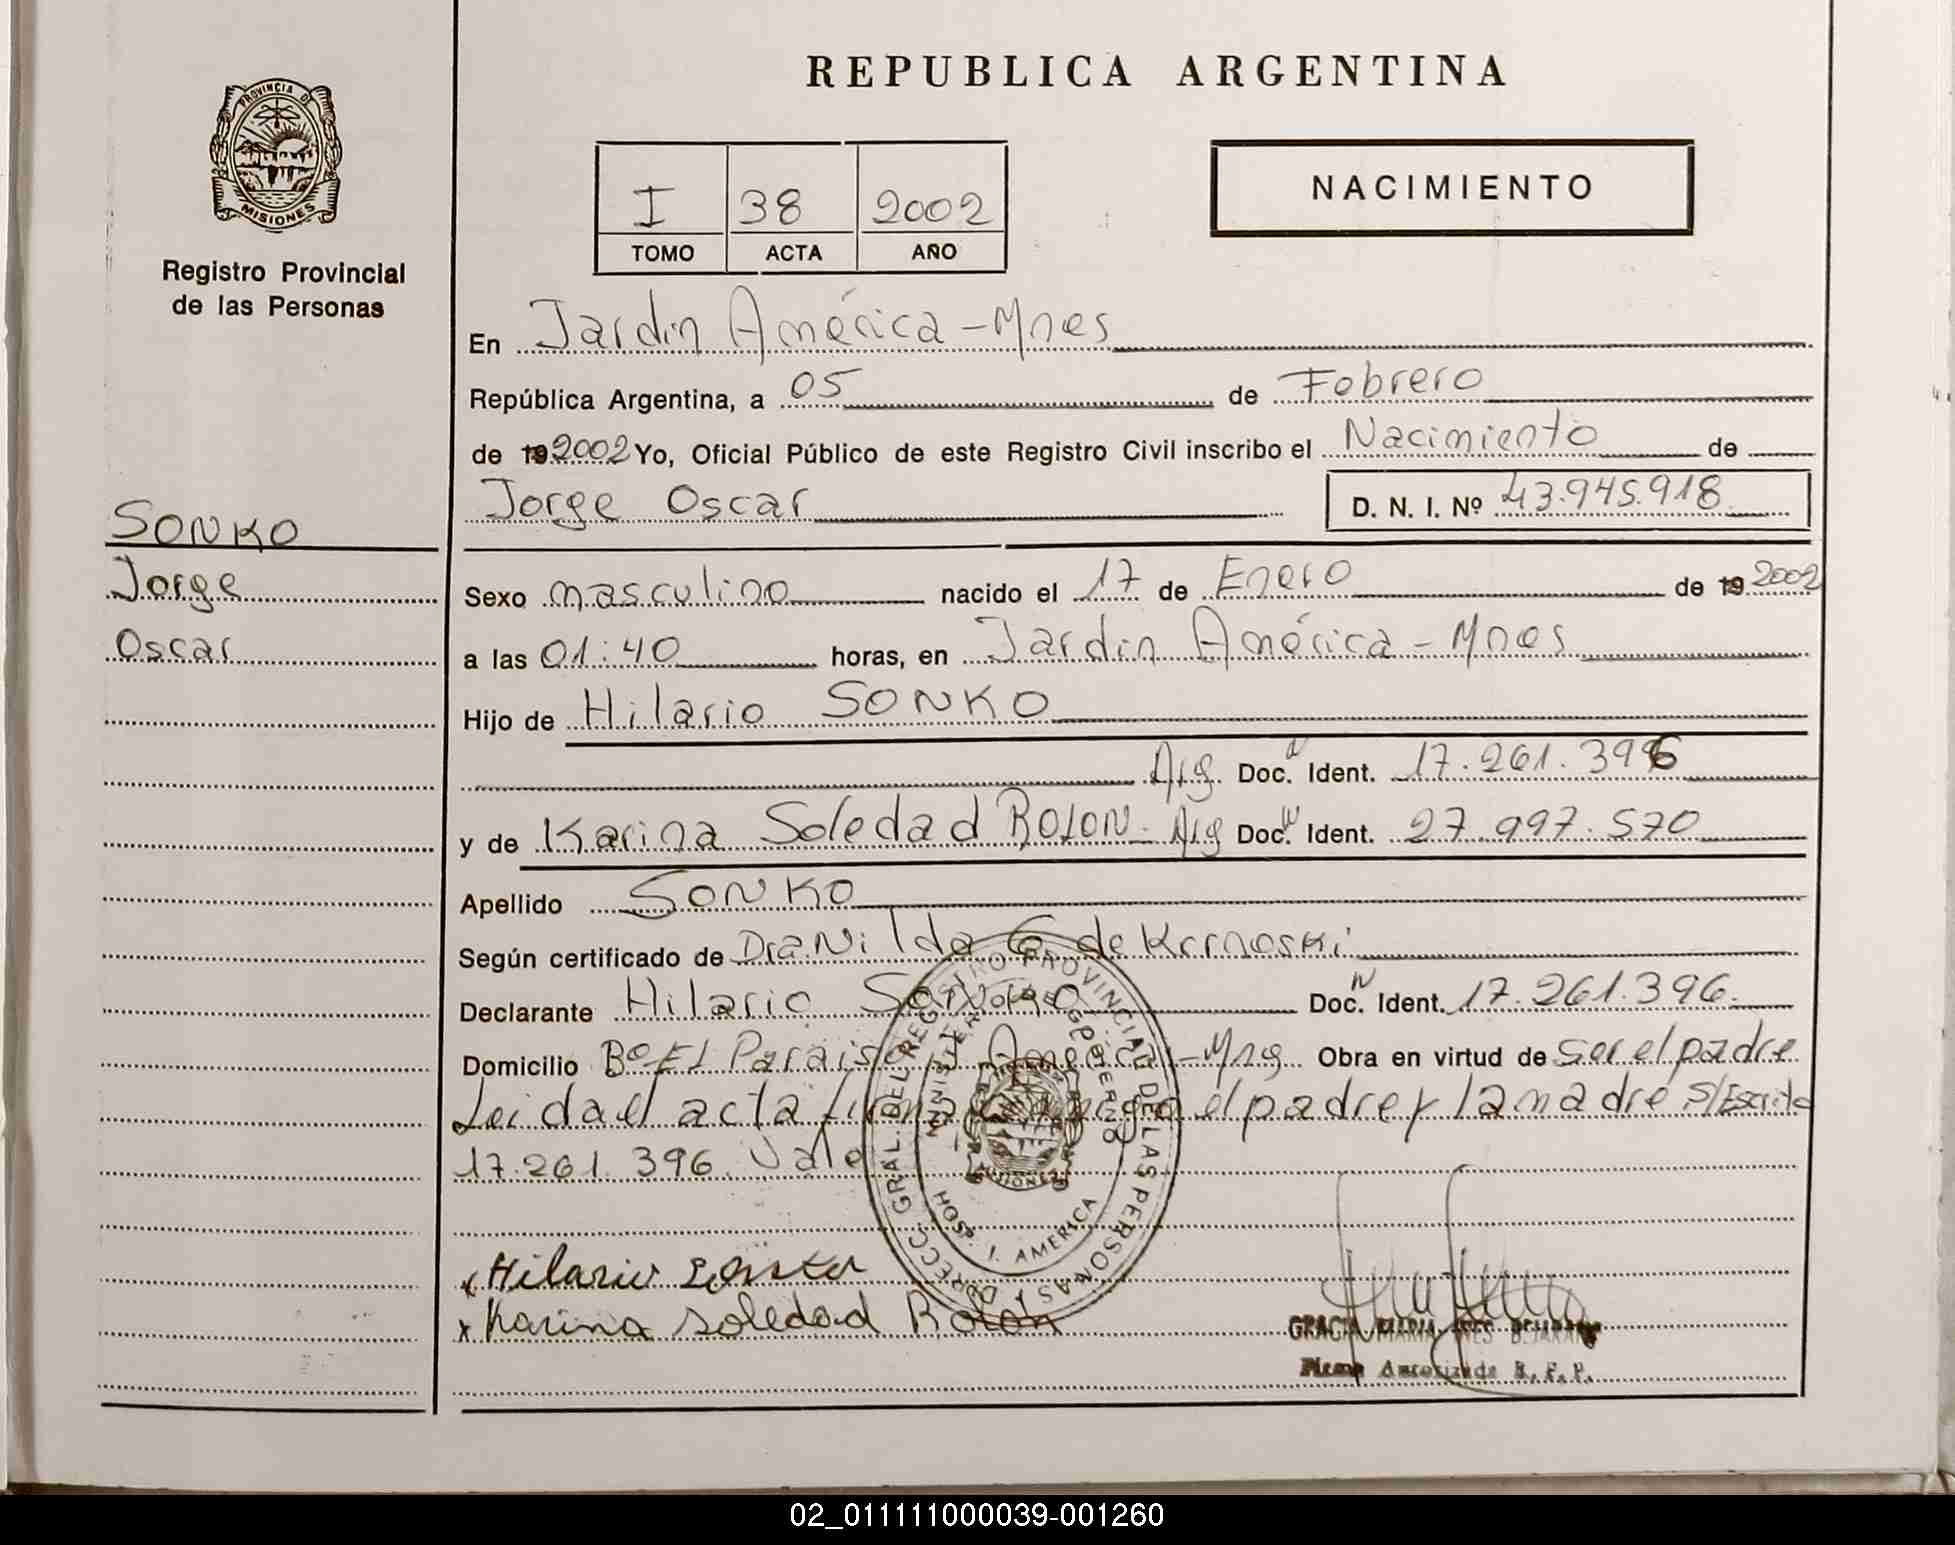 REPUBLICA ARGENTINA
PROVINCIA DE
MISIONES
Registro Provincial
de las Personas
I 38 2002
TOMO ACTA AÑO
NACIMIENTO
En Jardín América - Mnes
República Argentina, a 05 de Febrero
de 19 2002 Yo, Oficial Público de este Registro Civil inscribo el Nacimiento de
Jorge Oscar D. N. I. Nº 43.945.918
SONKO
Jorge
Oscar
Sexo masculino nacido el 17 de Enero de 19 2002
a las 01:40 horas, en Jardín América - Mnes
Hijo de Hilario SONKO
Arg. Doc. N Ident. 17.261.396
y de Karina Soledad ROLON - Arg Doc. N Ident. 27.997.570
Apellido SONKO
Según certificado de Dra Nilda G de
Declarante Hilario SONKO Doc. N Ident. 17.261.396.
Domicilio Bº El Paraiso J. América - Mns Obra en virtud de ser el padre
Leida el acta firma conmigo el padre y la madre S/Escrito
17.261.396. Vale
DIRECC. GRAL. DEL REGISTRO PROVINCIAL DE LAS PERSONAS
MINISTERIO DE GOBIERNO
MISIONES
HOSP. J. AMERICA
x Hilario Sonko
x Karina Soledad Rolon
GRACIELA MARIA INES BEJARANO
Firma Autorizada R. P. P.
02_011111000039-001260